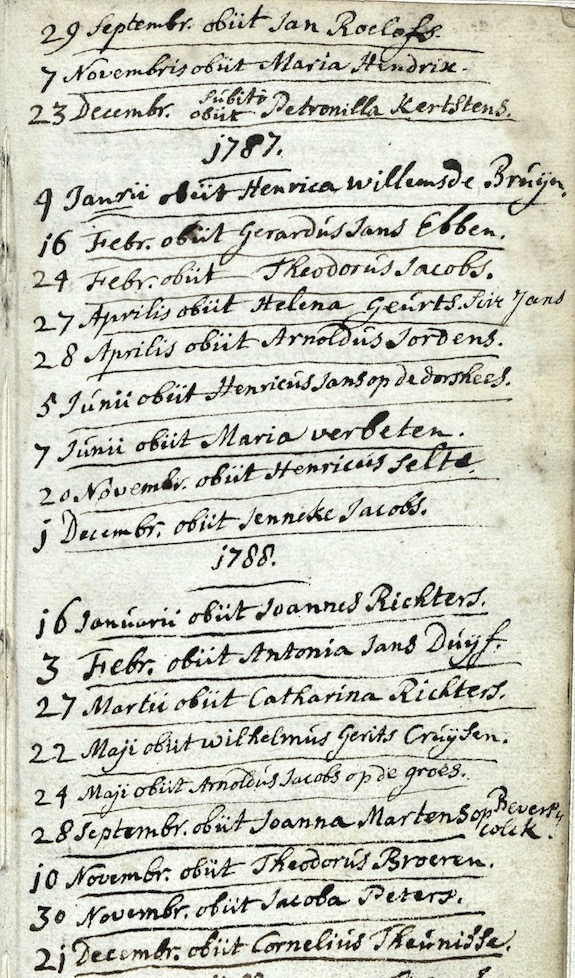 29 Septembr. obiit Jan Roelofs.
7 Novembris obiit Maria Hendrix.
23 Decembr. subito obiit Petronilla Kerstens.
1787.
9 Janrii obiit Henrica Willems de Bruijn.
16 Febr. obiit Gerardus Jans Ebben.
24 Febr. obiit Theodorus Jacobs.
27 Aprilis obiit Helena Geurts. Jans
28 Aprilis obiit Arnoldus Jordens.
5 Junii obiit Henricus Jans op de dorshees.
7 Junii obiit Maria verbeten.
20 Novembr. obiit Henricus Selte
1 Decembr. obiit Jenneke Jacobs.
1788.
16 Januarii obiit Joannes Richters.
3 Febr. obiit Antonia Jans Duijf.
27 Martii obiit Catharina Richters.
22 Maji obiit wilhelmus Gerits Cruijsen.
24 Maji obiit Arnoldus Jacobs op de groes.
28 Septembr. obiit Joanna Martens op
10 Novembr. obiit Theodorus Broeren.
30 Novembr. obiit Jacoba Peters.
21 Decembr. obiit Cornelius Theunisse.